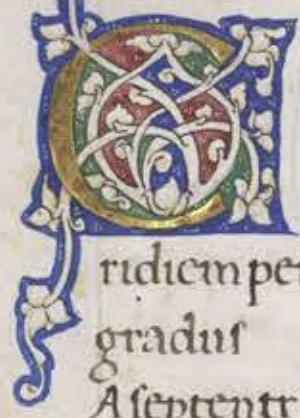 C
ridiem per
gradus
A septentr